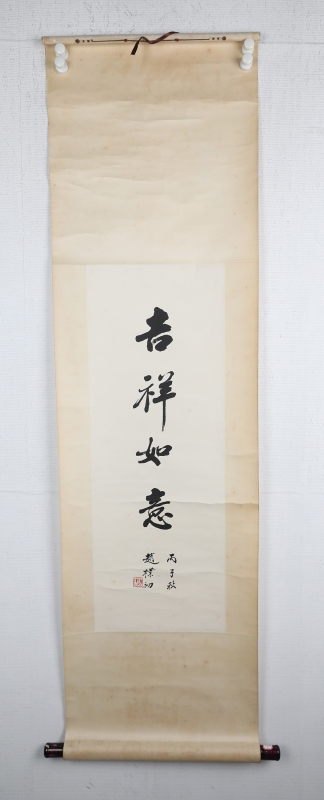 吉祥如意
丙子秋
趙樸初